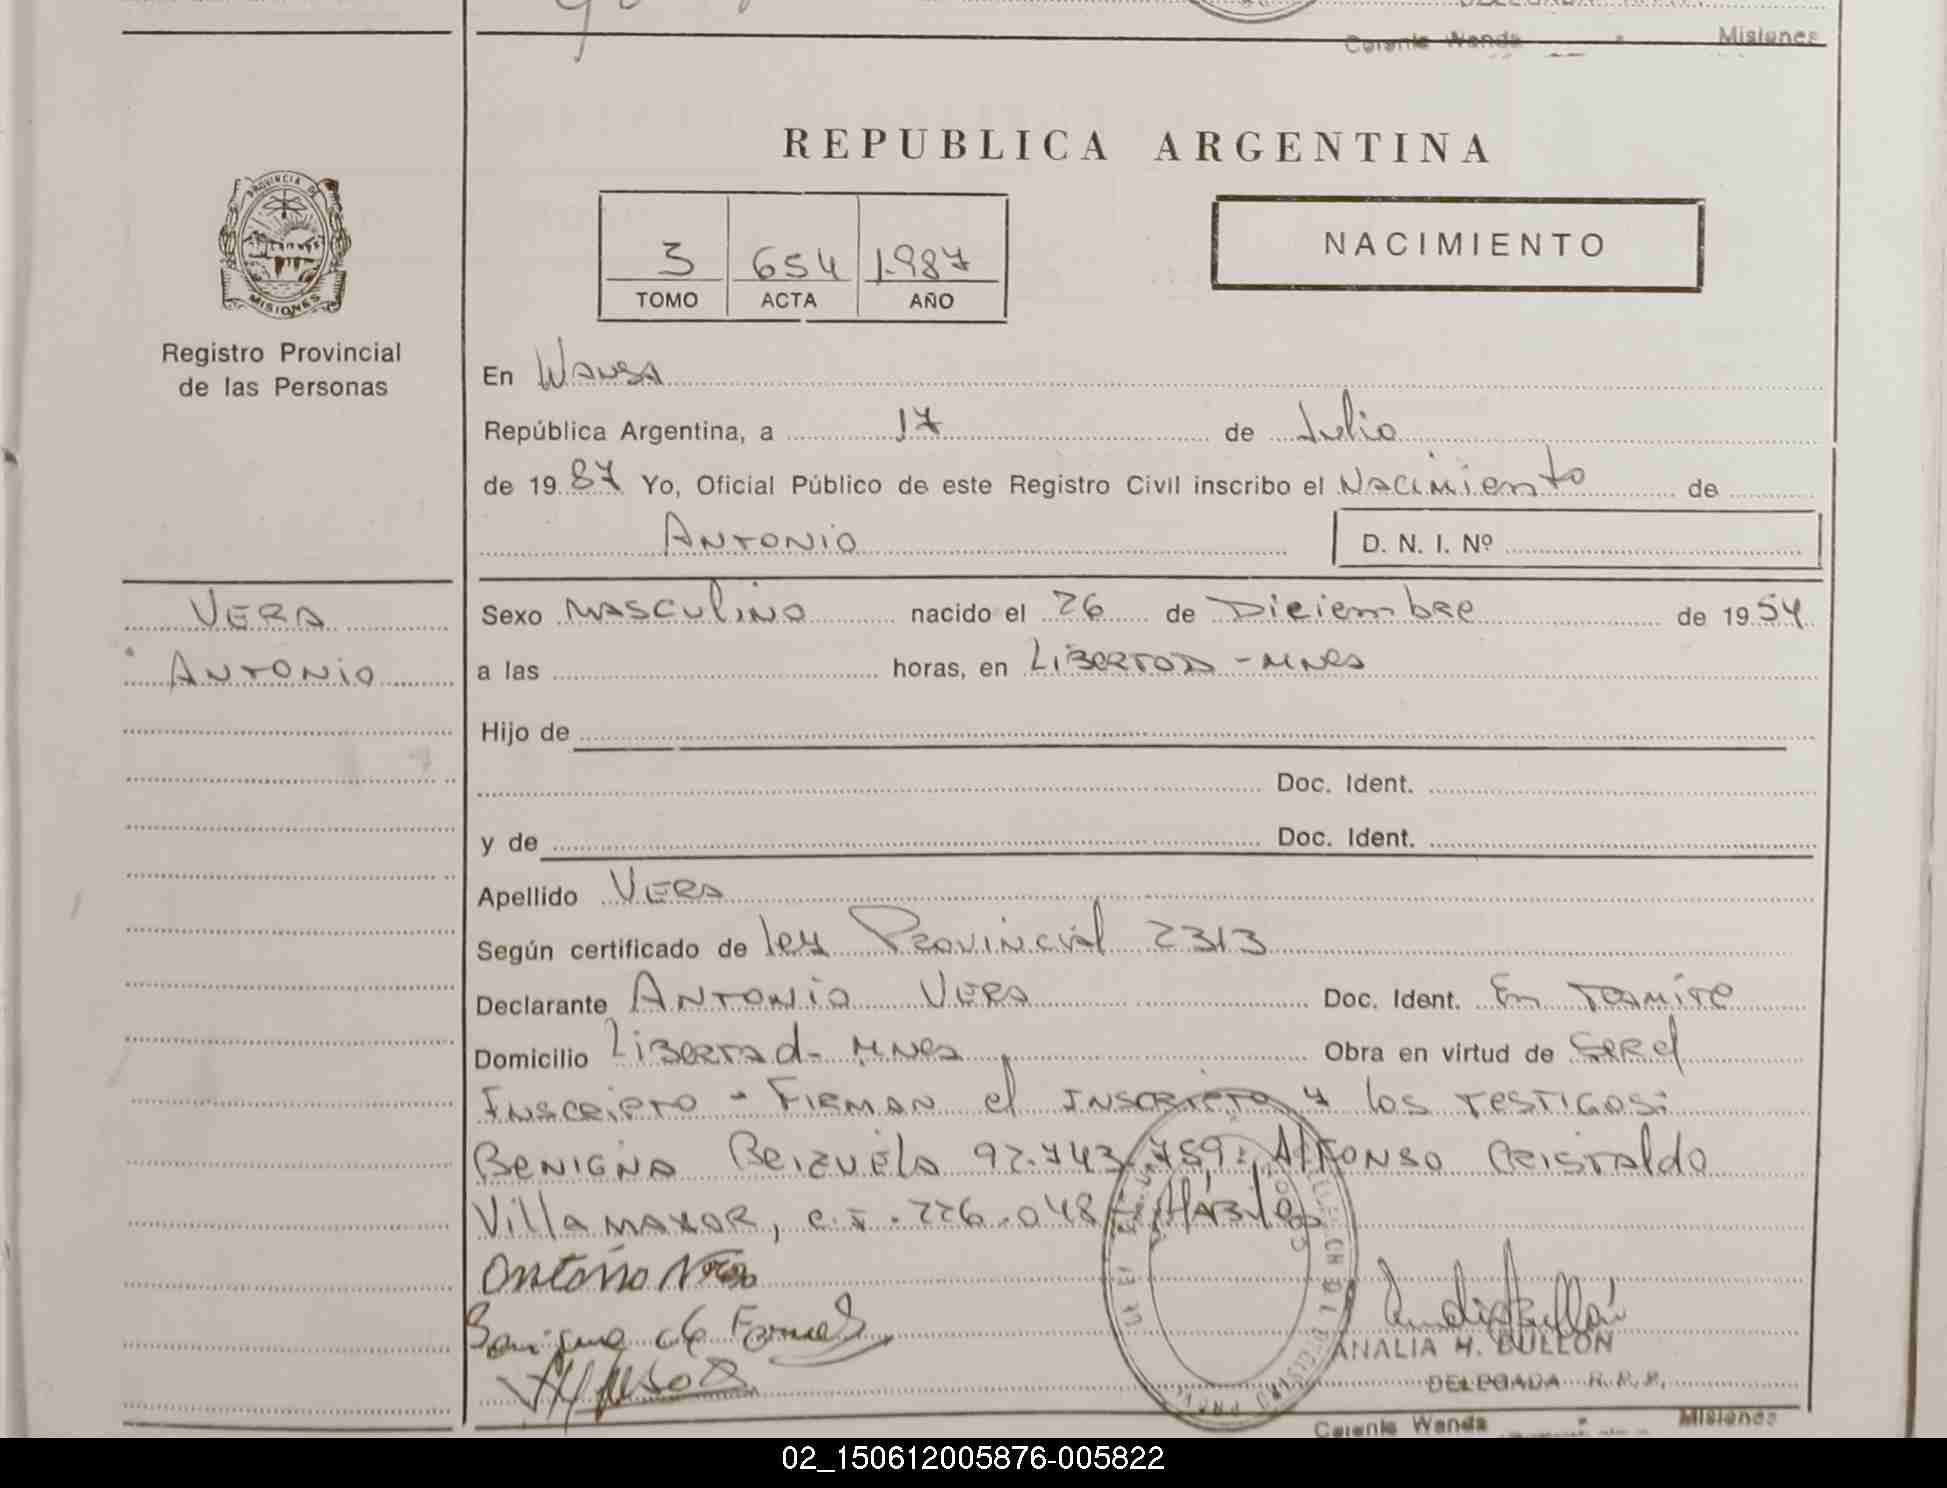 Colonia Wanda Misiones
REPUBLICA ARGENTINA
PROVINCIA DE
MISIONES
Registro Provincial
de las Personas
3 654 1.987
TOMO ACTA AÑO
NACIMIENTO
En Wanda
República Argentina, a 17 de Julio
de 1987 Yo, Oficial Público de este Registro Civil inscribo el Nacimiento de
Antonio D. N. I. Nº
VERA
Antonio
Sexo Masculino nacido el 26 de Diciembre de 1954
a las horas, en Libertad - Mnes
Hijo de
Doc. Ident.
y de Doc. Ident.
Apellido Vera
Según certificado de ley Provincial 2313
Declarante Antonio Vera Doc. Ident. En Tramite
Domicilio Libertad - Mnes Obra en virtud de ser el
Inscripto - Firman el Inscripto y los testigos:
Benigna Beizuela 92.743.759: Alfonso Cristaldo
Villamayor, c.i. 226.048 - Hábiles
Antonio Vera
Alfonso
ANALIA H. BULLON
DELEGADA R.P.P.
Colonia Wanda Misiones
02_150612005876-005822